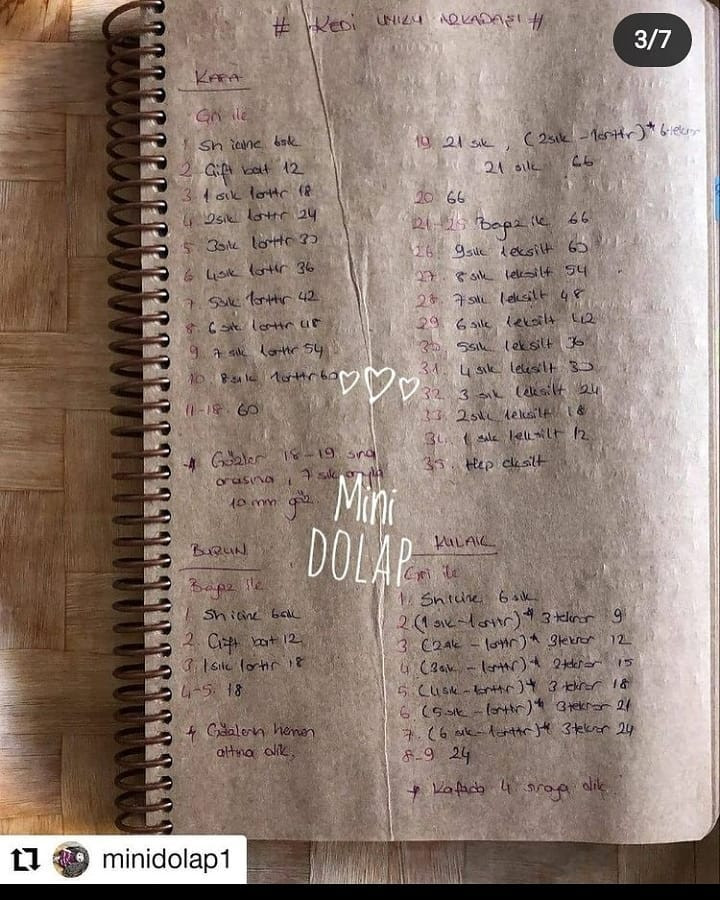 3/7
# KEDİ UYKU ARKADAŞI #
KAFA
Gri ile
1 Sh icine 6sık
2 Çift bat 12
3 1 sık 1arttr 18
4 2sık 1arttr 24
5 3sık 1arttr 30
6 4sık 1arttr 36
7 5sık 1arttr 42
8 6 sık 1arttr 48
9 7 sık 1arttr 54
10 8sık 1arttr 60
11-18. 60
* Gözler 18-19 sıra
arasına, 7 sık
10 mm göz
19 21 sık, (2sık - 1arttr)* 6tekrar
21 sık 66
20 66
21-25 Beyaz ile 66
26 9sık 1eksilt 60
27. 8 sık 1eksilt 54
28. 7 sık 1eksilt 48
29 6 sık 1eksilt 42
30 5sık 1eksilt 36
31 4 sık 1eksilt 30
32 3 sık 1eksilt 24
33. 2sık 1eksilt 18
34. 1 sık 1eksilt 12
35. Hep eksilt
Mini
DOLAP
BURUN
Beyaz ile
1 Sh icine 6sık
2 Çift bat 12
3. 1sık 1arttr 18
4-5. 18
* Gözlerin hemen
altına dik.
KULAK
Gri ile
1. Sh icine 6 sık
2 (1 sık - 1arttr)* 3 tekrar 9
3 (2sık - 1arttr)* 3tekrar 12
4 (3sık - 1arttr)* tekrar 15
5 (4sık - 1arttr)* 3 tekrar 18
6 (5 sık - 1arttr)* 3tekrar 21
7. (6 sık - 1arttr)* 3tekrar 24
8-9 24
* Kafada 4 sıraya dik.
minidolap1